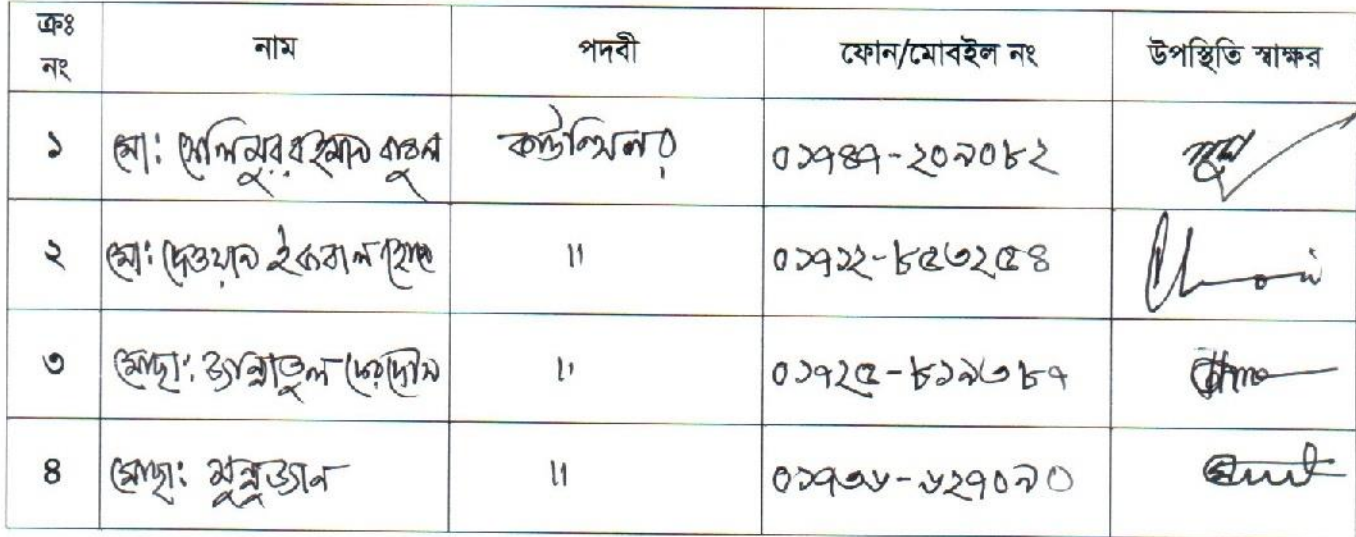 ক্রঃ নং নাম পদবী ফোন/মোবাইল নং উপস্থিতি স্বাক্ষর
১ মো: সেলিমুর রহমান বাবুল কাউন্সিলর ০১৭৪৭-২০৯০৮২
২ মো: দেওয়ান ইকবাল হোসেন " ০১৭১২-৮৫৩২৫৪
৩ মোছা: জান্নাতুল ফেরদৌস " ০১৭২৫-৮১৯৩৮৭
৪ মোছা: মুন্নুজান " ০১৭৩৬-৬২৭০৯০